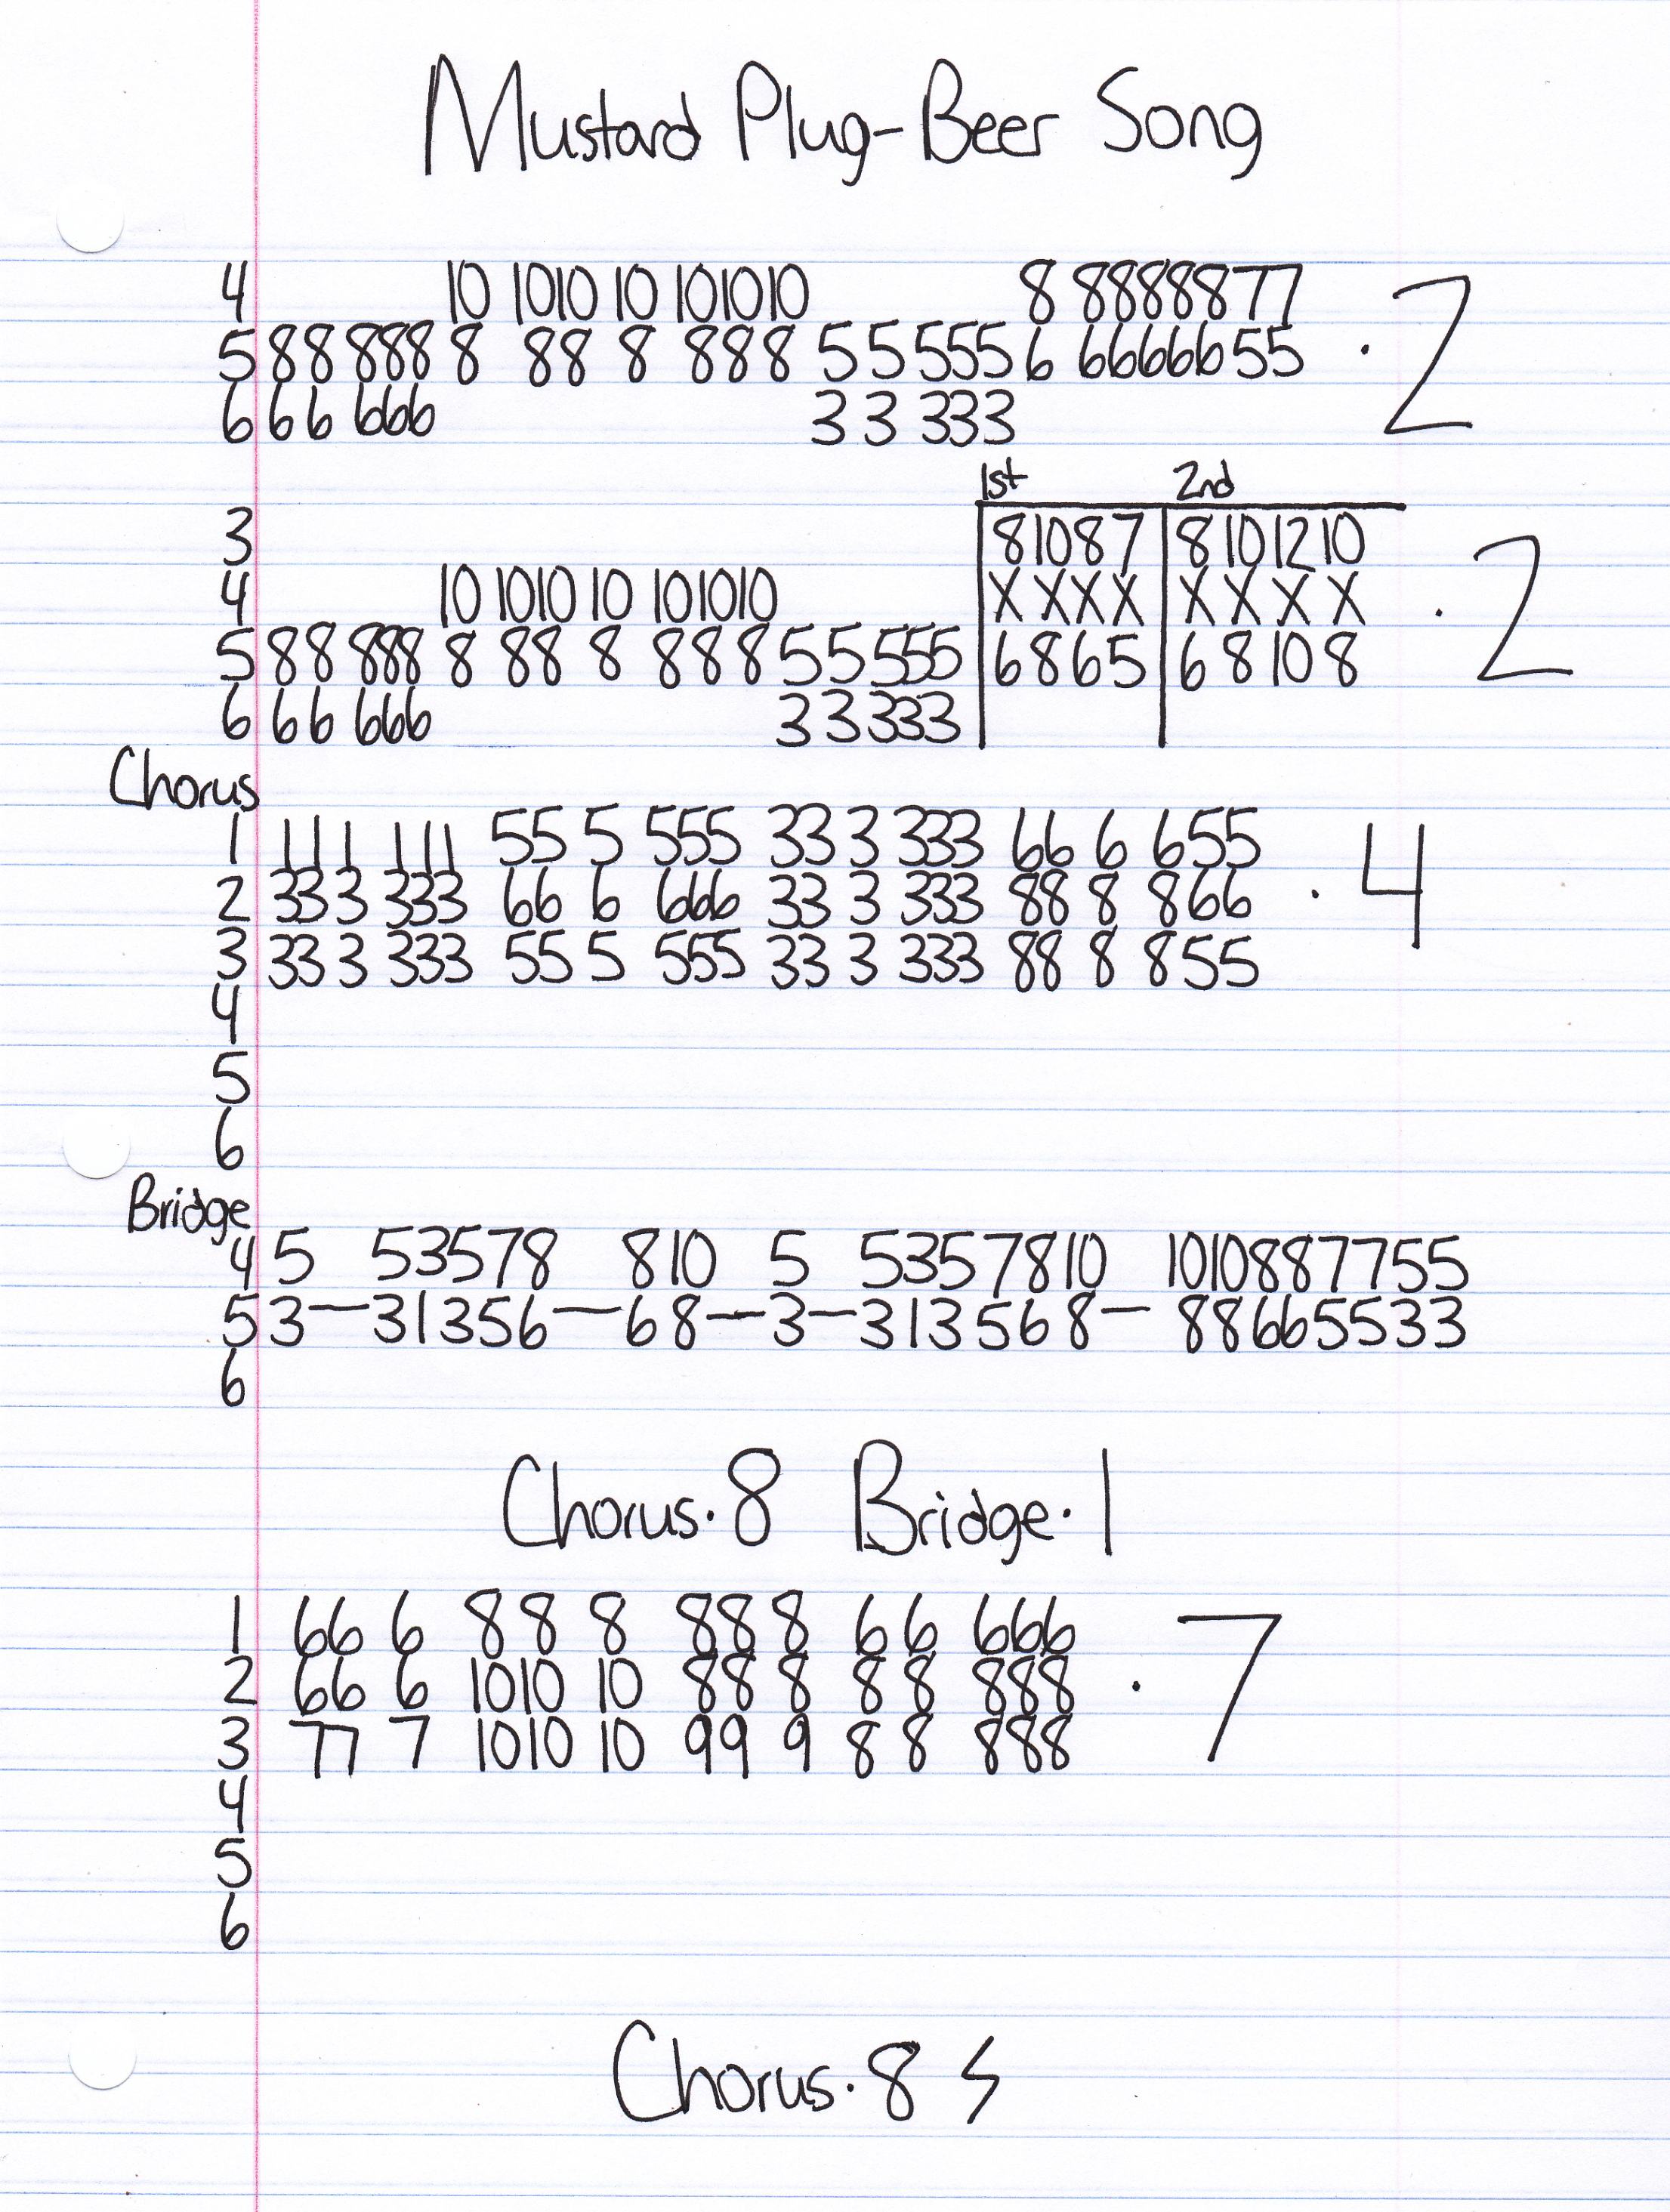 Mustard Plug-Beer Song
4 10 1010 10 101010 8 8888877
5 88 888 8 88 8 888 5 5 555 6 6666655 · 2
6 66 666 3 3 333
1st 2nd
3 81087 8101210
4 10 1010 10 101010 XXXX XXXX · 2
5 88 888 8 88 8 888 55555 6865 68108
6 66 666 33333
Chorus
1 11 1 111 55 5 555 33 3 333 66 6 655
2 33 3 333 66 6 666 33 3 333 88 8 866 · 4
3 33 3 333 55 5 555 33 3 333 88 8 855
4
5
6
Bridge
4 5 53578 810 5 5357810 1010887755
5 3—31356—68—3—313568— 88665533
6
Chorus·8 Bridge·1
1 66 6 88 8 888 66 666
2 66 6 1010 10 888 88 888 · 7
3 77 7 1010 10 999 88 888
4
5
6
Chorus·8